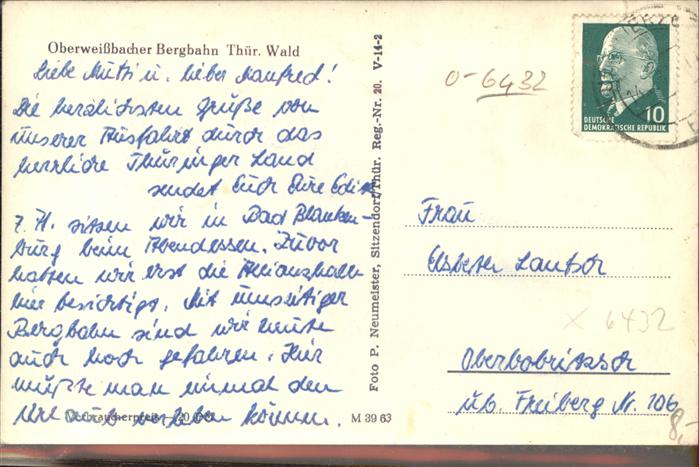 Oberweißbacher Bergbahn Thür. Wald
Liebe Mutti u. lieber Manfred!
Die herzlichsten Grüße von
unserer Ausfahrt durch das
herrliche Thüringer Land
sendet Euch Eure Edith
Z. Zt. sitzen wir in Bad Blanken-
burg beim Abendessen. Zuvor
hatten wir erst die
hier besichtigt. Mit umseitiger
Bergbahn sind wir heute
auch noch gefahren. Hier
müßte man einmal den
Urlaub verleben können.
Verbraucherpreis 20
M 39 63
Foto P. Neumeister, Sitzendorf/Thür. Reg.-Nr. 20. V-14-2
0-6432
10
DEUTSCHE
DEMOKRATISCHE REPUBLIK
Frau
Elsbeth Lantzsch
x 6432
Oberbobritzsch
üb. Freiberg Nr. 106
8,-